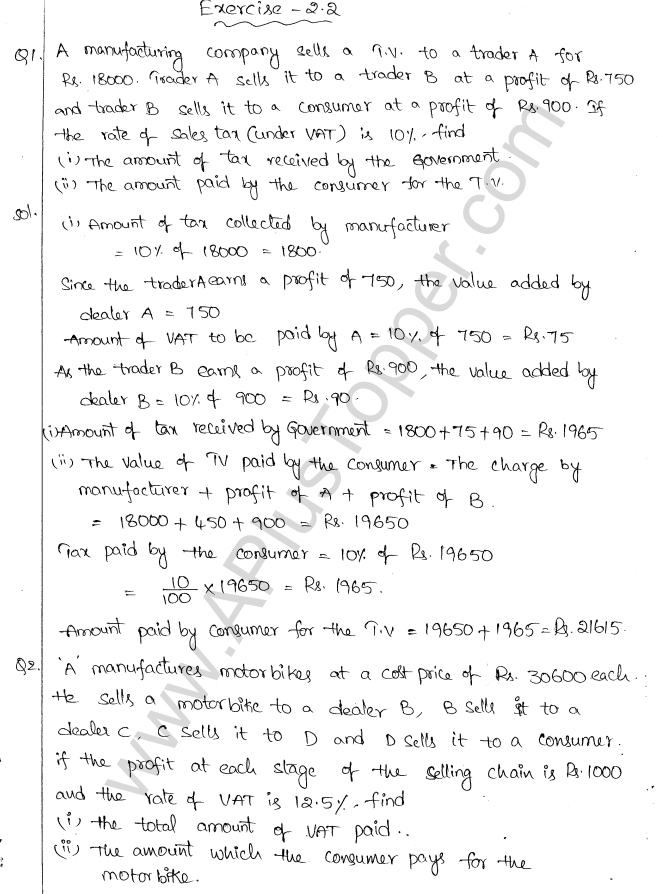 Exercise - 2.2
Q1. A manufacturing company sells a T.V. to a trader A for
Rs. 18000. Trader A sells it to a trader B at a profit of Rs.750
and trader B sells it to a consumer at a profit of Rs.900. If
the rate of sales tax (under VAT) is 10%, find
(i) The amount of tax received by the Government.
(ii) The amount paid by the consumer for the T.V.
Sol. (i) Amount of tax collected by manufacturer
= 10% of 18000 = 1800.
Since the trader A earns a profit of 750, the value added by
dealer A = 750
Amount of VAT to be paid by A = 10% of 750 = Rs.75
As the trader B earns a profit of Rs.900, the value added by
dealer B = 10% of 900 = Rs.90.
(i) Amount of tax received by Government = 1800+75+90 = Rs. 1965
(ii) The value of TV paid by the consumer = The charge by
manufacturer + profit of A + profit of B.
= 18000 + 450 + 900 = Rs. 19650
Tax paid by the consumer = 10% of Rs. 19650
= 10/100 × 19650 = Rs. 1965.
Amount paid by consumer for the T.V = 19650 + 1965 = Rs. 21615.
Q2. 'A' manufactures motorbikes at a cost price of Rs. 30600 each.
He sells a motorbike to a dealer B, B sells it to a
dealer C, C sells it to D and D sells it to a consumer.
if the profit at each stage of the selling chain is Rs.1000
and the rate of VAT is 12.5%, find
(i) the total amount of VAT paid..
(ii) The amount which the consumer pays for the
motorbike.
www.APlusTopper.com